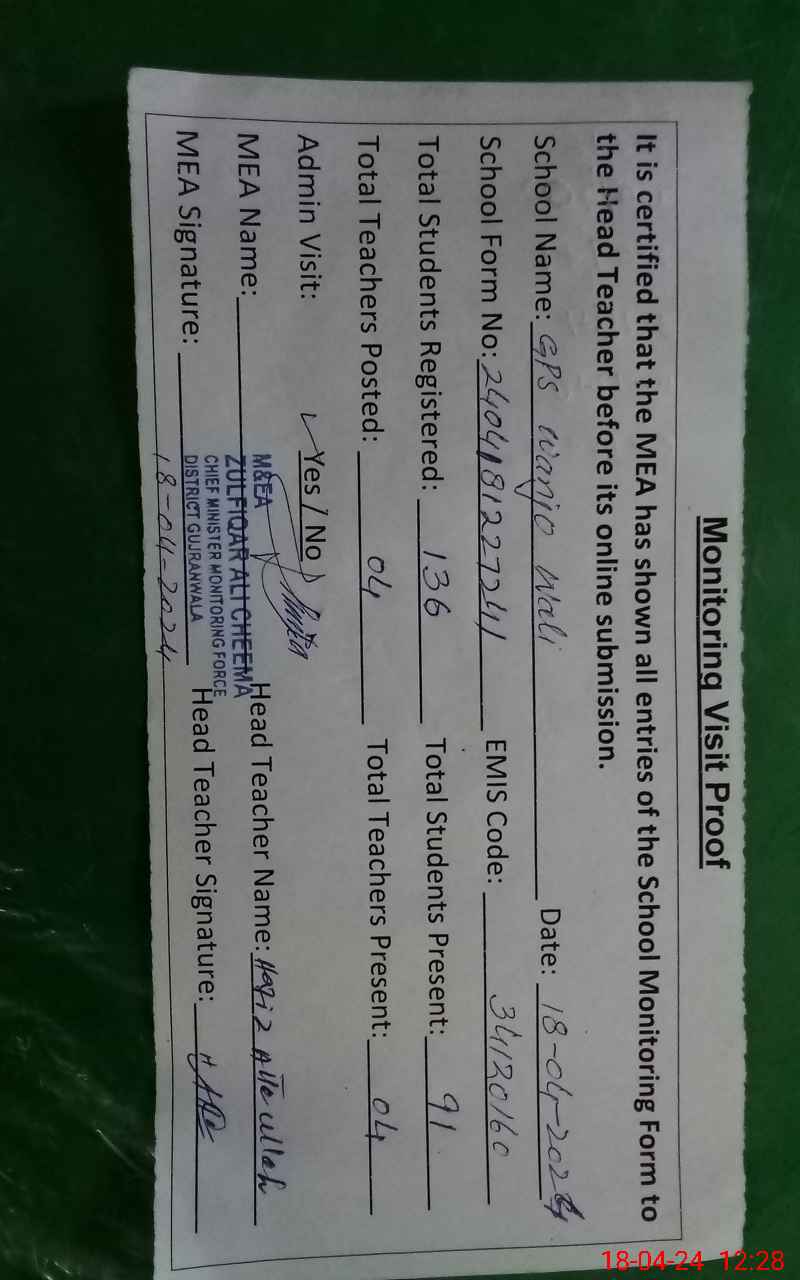 Monitoring Visit Proof
It is certified that the MEA has shown all entries of the School Monitoring Form to
the Head Teacher before its online submission.
School Name: GPS Wanjo Wali Date: 18-04-2024
School Form No: 2404181227241 EMIS Code: 34120160
Total Students Registered: 136 Total Students Present: 91
Total Teachers Posted: 04 Total Teachers Present: 04
Admin Visit: ✓ Yes / No
MEA Name: Head Teacher Name: Hafiz Atta ullah
M&EA
ZULFIQAR ALI CHEEMA
CHIEF MINISTER MONITORING FORCE
DISTRICT GUJRANWALA
MEA Signature: Head Teacher Signature:
18-04-2024
18-04-24 12:28